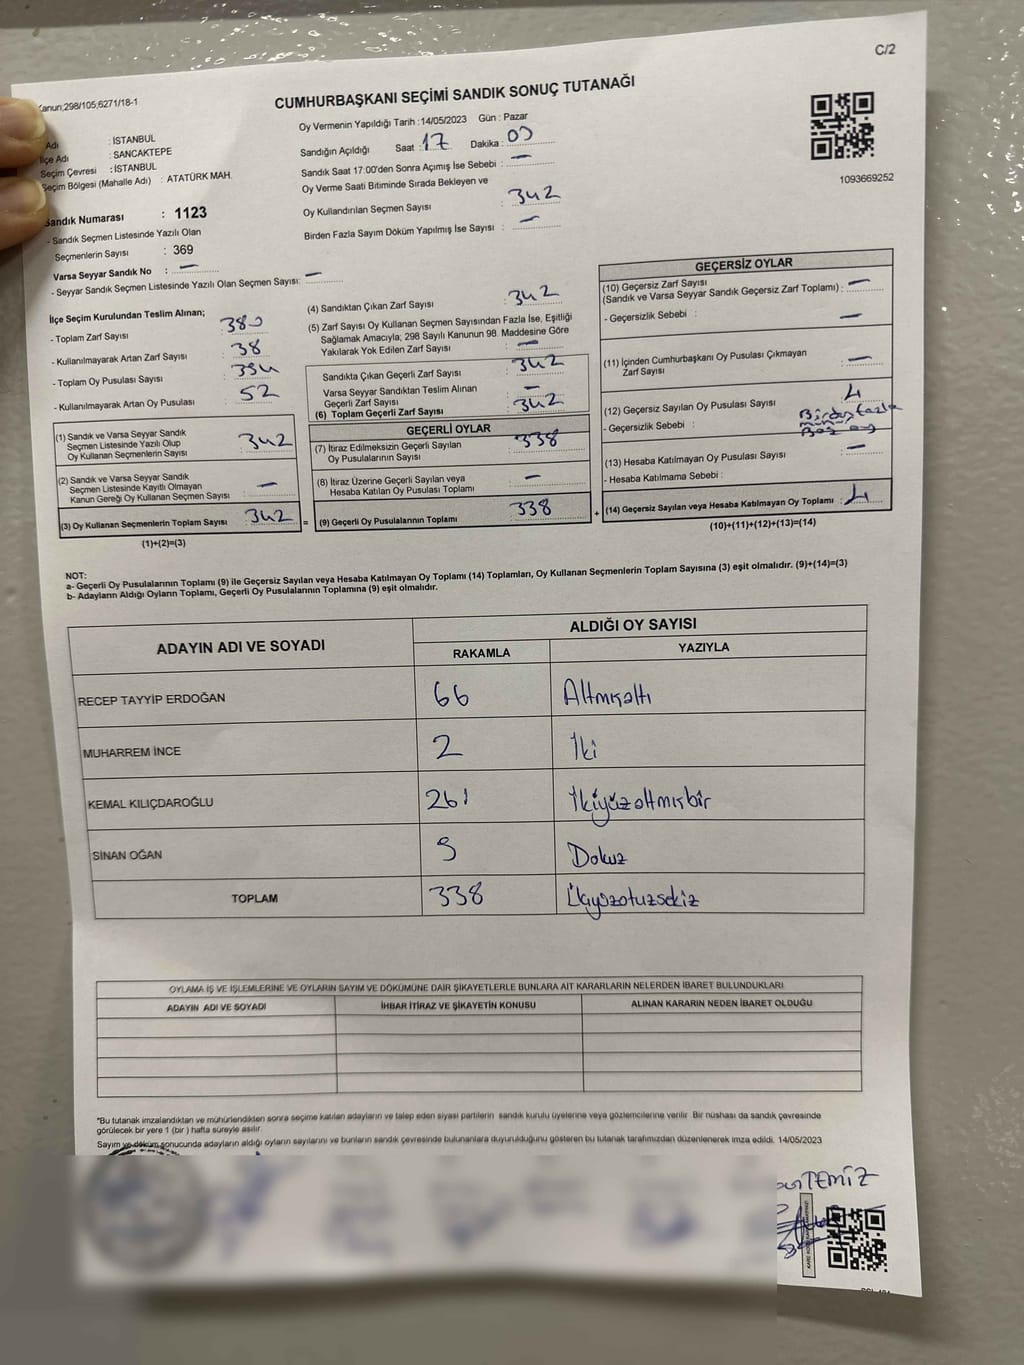 C/2
Kanun;298/105;6271/18-1
CUMHURBAŞKANI SEÇİMİ SANDIK SONUÇ TUTANAĞI
Adı : İSTANBUL
İlçe Adı : SANCAKTEPE
Seçim Çevresi : İSTANBUL
Seçim Bölgesi (Mahalle Adı) : ATATÜRK MAH.
Sandık Numarası : 1123
- Sandık Seçmen Listesinde Yazılı Olan
Seçmenlerin Sayısı : 369
Varsa Seyyar Sandık No : —
- Seyyar Sandık Seçmen Listesinde Yazılı Olan Seçmen Sayısı: —
Oy Vermenin Yapıldığı Tarih :14/05/2023 Gün : Pazar
Sandığın Açıldığı Saat : 17 Dakika : 00
Sandık Saat 17:00'den Sonra Açımış İse Sebebi : —
Oy Verme Saati Bitiminde Sırada Bekleyen ve
Oy Kullandırılan Seçmen Sayısı : 342
Birden Fazla Sayım Döküm Yapılmış İse Sayısı : —
1093669252
İlçe Seçim Kurulundan Teslim Alınan;
- Toplam Zarf Sayısı : 380
- Kullanılmayarak Artan Zarf Sayısı : 38
- Toplam Oy Pusulası Sayısı : 394
- Kullanılmayarak Artan Oy Pusulası : 52
(1) Sandık ve Varsa Seyyar Sandık
Seçmen Listesinde Yazılı Olup
Oy Kullanan Seçmenlerin Sayısı : 342
(2) Sandık ve Varsa Seyyar Sandık
Seçmen Listesinde Kayıtlı Olmayan
Kanun Gereği Oy Kullanan Seçmen Sayısı : —
(3) Oy Kullanan Seçmenlerin Toplam Sayısı : 342 =
(1)+(2)=(3)
(4) Sandıktan Çıkan Zarf Sayısı : 342
(5) Zarf Sayısı Oy Kullanan Seçmen Sayısından Fazla İse, Eşitliği
Sağlamak Amacıyla; 298 Sayılı Kanunun 98. Maddesine Göre
Yakılarak Yok Edilen Zarf Sayısı : —
Sandıkta Çıkan Geçerli Zarf Sayısı : 342
Varsa Seyyar Sandıktan Teslim Alınan
Geçerli Zarf Sayısı : —
(6) Toplam Geçerli Zarf Sayısı : 342
GEÇERLİ OYLAR
(7) İtiraz Edilmeksizin Geçerli Sayılan
Oy Pusulalarının Sayısı : 338
(8) İtiraz Üzerine Geçerli Sayılan veya
Hesaba Katılan Oy Pusulası Toplamı : —
(9) Geçerli Oy Pusulalarının Toplamı : 338 +
GEÇERSİZ OYLAR
(10) Geçersiz Zarf Sayısı
(Sandık ve Varsa Seyyar Sandık Geçersiz Zarf Toplamı) : —
- Geçersizlik Sebebi : —
(11) İçinden Cumhurbaşkanı Oy Pusulası Çıkmayan
Zarf Sayısı : —
(12) Geçersiz Sayılan Oy Pusulası Sayısı : 4
- Geçersizlik Sebebi : Birden fazla
mühür
Boş oy
(13) Hesaba Katılmayan Oy Pusulası Sayısı : —
- Hesaba Katılmama Sebebi :
(14) Geçersiz Sayılan veya Hesaba Katılmayan Oy Toplamı : 4
(10)+(11)+(12)+(13)=(14)
NOT:
a- Geçerli Oy Pusulalarının Toplamı (9) ile Geçersiz Sayılan veya Hesaba Katılmayan Oy Toplamı (14) Toplamları, Oy Kullanan Seçmenlerin Toplam Sayısına (3) eşit olmalıdır. (9)+(14)=(3)
b- Adayların Aldığı Oyların Toplamı, Geçerli Oy Pusulalarının Toplamına (9) eşit olmalıdır.
ADAYIN ADI VE SOYADI ALDIĞI OY SAYISI
RAKAMLA YAZIYLA
RECEP TAYYİP ERDOĞAN 66 Altmışaltı
MUHARREM İNCE 2 İki
KEMAL KILIÇDAROĞLU 261 İkiyüzaltmışbir
SİNAN OĞAN 9 Dokuz
TOPLAM 338 Üçyüzotuzsekiz
OYLAMA İŞ VE İŞLEMLERİNE VE OYLARIN SAYIM VE DÖKÜMÜNE DAİR ŞİKAYETLERLE BUNLARA AİT KARARLARIN NELERDEN İBARET BULUNDUKLARI
ADAYIN ADI VE SOYADI İHBAR İTİRAZ VE ŞİKAYETİN KONUSU ALINAN KARARIN NEDEN İBARET OLDUĞU
*Bu tutanak imzalandıktan ve mühürlendikten sonra seçime katılan adayların ve talep eden siyasi partilerin sandık kurulu üyelerine veya gözlemcilerine verilir. Bir nüshası da sandık çevresinde
görülecek bir yere 1 (bir ) hafta süreyle asılır.
Sayım ve döküm sonucunda adayların aldığı oyların sayılarını ve bunların sandık çevresinde bulunanlara duyurulduğunu gösteren bu tutanak tarafımızdan düzenlenerek imza edildi. 14/05/2023
TEMİZ